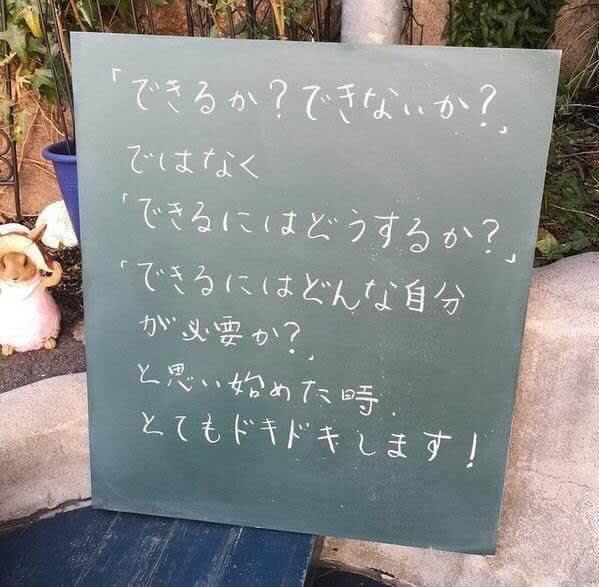 「できるか？できないか？」
ではなく
「できるにはどうするか？」
「できるにはどんな自分
が必要か？」
と思い始めた時、
とてもドキドキします！